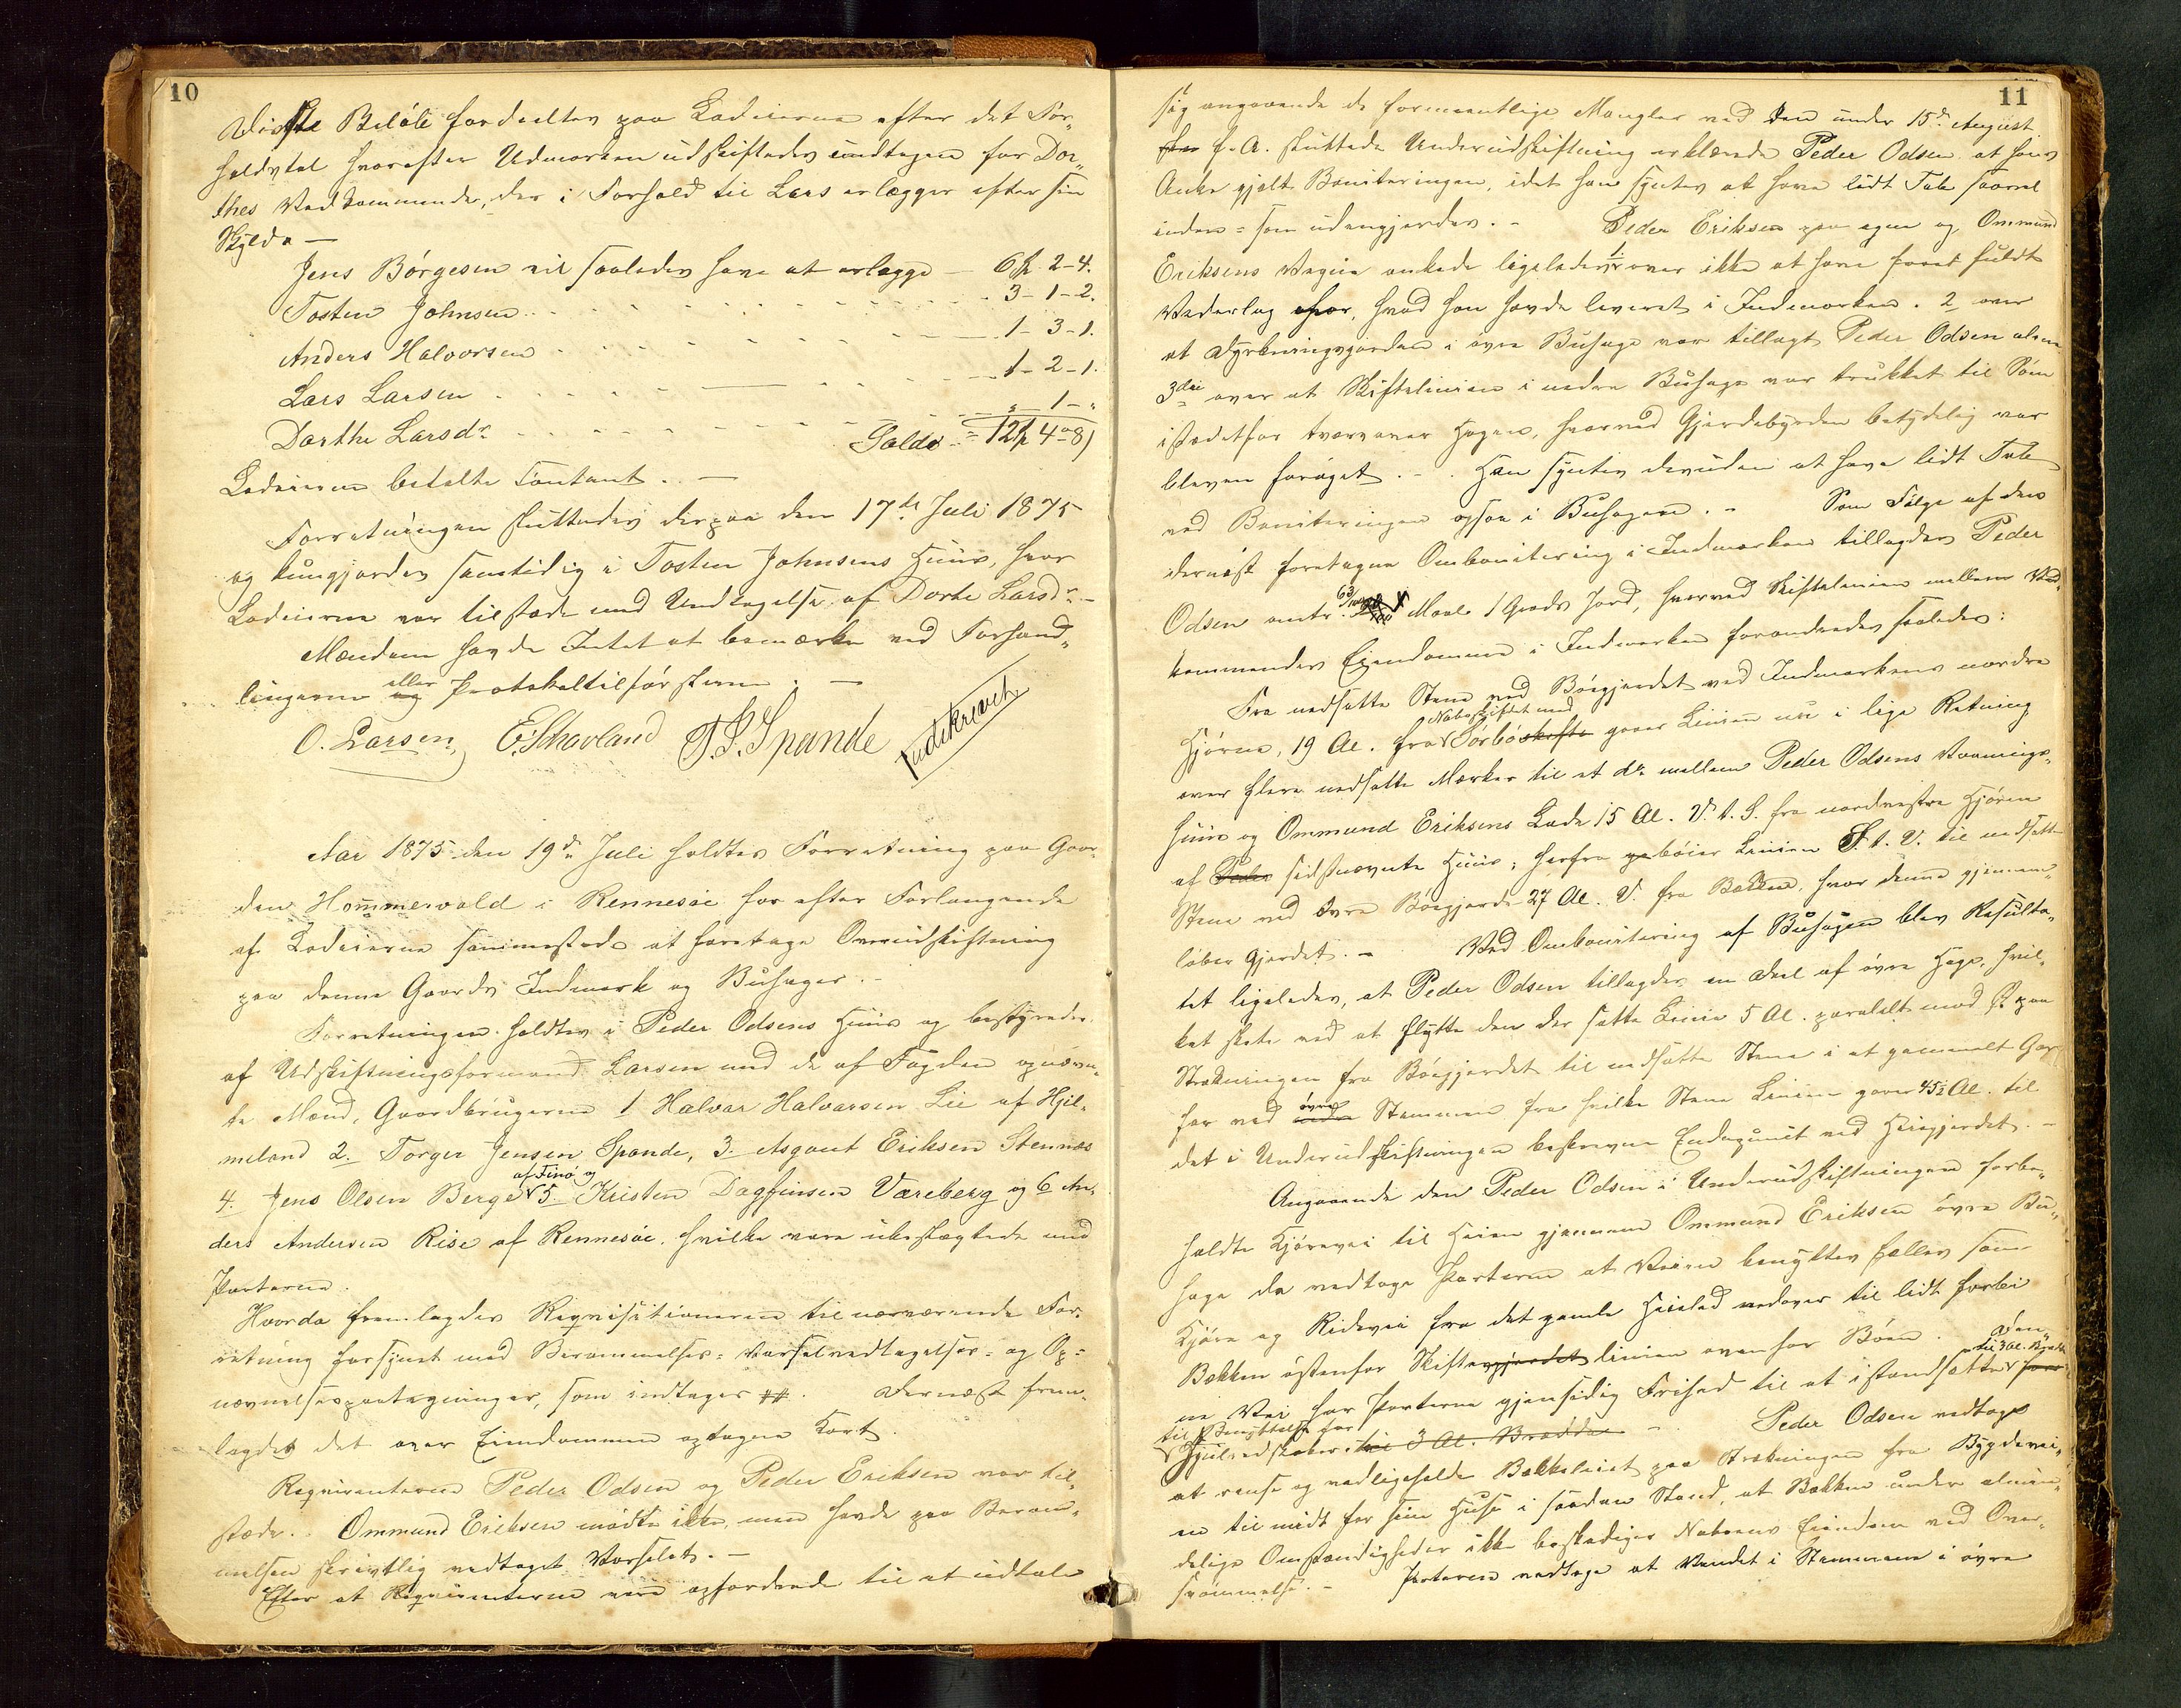 10
Disse Beløb fordeeltes paa Lodeierne efter det For-
holdstal hvorefter Udmarken udskiftedes undtagen for Dor-
thes Vedkommende, der i Forhold til Lars erlægger efter sin
Skyld. —
Jens Børgesen vil saaledes have at erlægge — 6 2-4.
Tosten Johnsen . . . 3-1-2.
Anders Halvorsen . . . 1-3-1.
Lars Larsen . . . 1-2-1.
Dorthe Larsdr. . . . " 1-"
Saldo = 12 4-8)
Lodeierne betalte contant. —
Forretningen sluttedes derpaa den 17de Juli 1875
og kundgjordes samtidig i Tosten Johnsens Huus, hvor
Lodeierne var tilstæde med Undtagelse af Dorte Larsdr. —
Mændene havde Intet at bemærke ved Forhand-
lingerne eller Protokoltilførslerne. —
O. Larsen, E. Schavland T. L. Spande Indskrevet
Aar 1875 den 19de Juli holdtes Forretning paa Gaar-
den Hommersvold i Rennesøe for efter Forlangende
af Lodeierne sammesteds at foretage Overudskiftning
paa denne Gaards Indmark og Buhager. -
Forretningen holdtes i Peder Odsens Huus og bestyredes
af Udskiftningsformand Larsen med de af Fogden opnævn-
te Mænd, Gaardbrugerne 1 Halvar Halvarsen Lie af Hjel-
meland 2. Torger Jensen Spande, 3. Asgaut Eriksen Stennæs
4. Jens Olsen Berge af Finø og 5 Kristen Dagfinsen Væreberg og 6 An-
ders Andersen Rise af Rennesøe, hvilke vare ubeslægtede med
Parterne.
Hvorda fremlagdes Reqvisitionerne til nærværende For-
retning forsynet med Berammelses- Varselvedtagelses- og Op-
nævnelsespaategninger, som indtages ##. Dernæst frem-
lagdes det over Eiendommen optagne Kort.
Reqvirenterne Peder Odsen og Peder Eriksen var til-
stæde. Ommund Eriksen mødte ikke, men havde paa Beram-
melsen skriftlig vedtaget Varselet. —
Efter at Reqvirenterne vare opfordrede til at udtale
11
sig angaaende de formeentlige Mangler ved den under 15de August
f. A. sluttede Underudskiftning erklærede Peder Odsen at hans
Anke gjalt Boniteringen, idet han syntes at have lidt Tab saavel
inden- som udengjerdes. - Peder Eriksen paa egne og Ommund
Eriksens Vegne ankede ligeledes 1 over ikke at have faaet fuldt
Vederlag for, hvad han havde leveret i Indmarken. 2 over
at Dyrkningsjorden i øvre Buhage var tillagt Peder Odsen alene
3die over at Skiftelinien i nedre Buhage var trukket til Søen
istædetfor tværsover Hagen, hvorved Gjerdebyrden betydelig var
bleven forøget. - Han syntes desuden at have lidt Tab
ved Boniteringen ogsaa i Buhagene. - Som Følge af den
dernæst foretagne Ombonitering i Indmarken tillagdes Peder
Odsen omtr. Maal 1 Grads Jord, hvorved Skiftelinien mellem Ved-
kommendes Eiendomme i Indmarken forandredes saaledes:
Fra nedsatte Steen ved Bøegjerdet ved Indmarkens nordre
Hjørne, 19 Al. fra Naboskiftet med Sørbø gaaer Linien nu i lige Retning
over flere nedsatte Mærker til et do. mellem Peder Odsens Vaanings-
huus og Ommund Eriksens Lade 15 Al. V. t. S. fra nordvestre Hjørne
af sidstnævnte Huus; herfra bøier Linien S. t. V. til nedsatte
Steen ved øvre Bøegjerde 27 Al. V. fra Bækken, hvor denne gjennem-
løber Gjerdet. - Ved Ombonitering af Buhagen blev Resulta-
tet ligeledes, at Peder Odsen tillagdes en Deel af øvre Hage, hvil-
ket skete ved at flytte den der satte Linie 5 Al. paralelt mod S. paa
Strækningen fra Bøegjerdet til nedsatte Steen i et gammelt Gar-
far ved øvre Stemmen fra hvilke Steen Linien gaaer 45½ Al. til
det i Underudskiftningen beskrevne Endepunct ved Heiegjerdet. -
Angaaende den Peder Odsen i Underudskiftningen forbe-
holdte Kjørevei til Heien gjennem Ommund Eriksen øvre Bu-
hage da vedtoge Parterne at Veien benyttes fælles som
Kjøre og Ridevei fra det gamle Heieled nedover til lidt forbi
Bækken østenfor Skiftelinien ovenfor Bøen. Den-
ne Vei har Parterne gjensidig Frihed til at istandsætte til 3 Al. Bredde
til Benyttelse for Hjulredskaber. - Peder Odsen vedtoge
at rense og vedligeholde Bækkeleiet paa Strækningen fra Bygdevei-
en til midt for sine Huse i saadan Stand, at Bækken under almin-
delige Omstændigheder ikke beskadiger Naboens Eiendom ved Over-
svømmelse. - Parterne vedtoge at Vandet i Stemmene i øvre